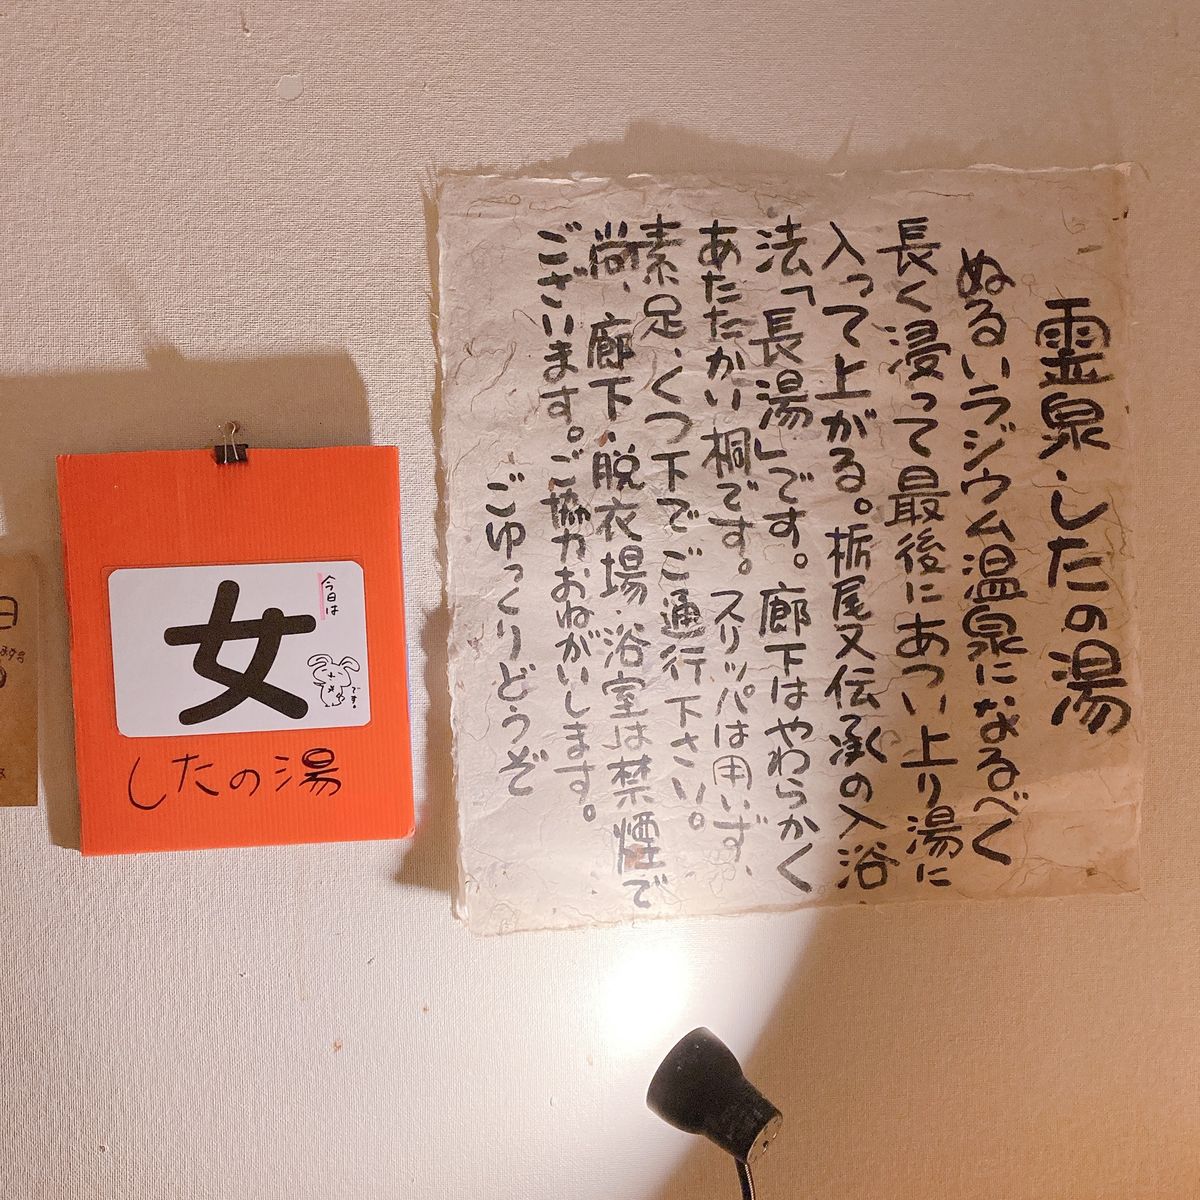 霊泉・したの湯
ぬるいラジウム温泉になるべく
長く浸って最後にあつい上り湯に
入って上がる。栃尾又伝承の入浴
法「長湯」です。廊下はやわらかく
あたたかい桐です。スリッパは用いず、
素足、くつ下でご通行下さい。
尚、廊下・脱衣場・浴室は禁煙で
ございます。ご協力おねがいします。
ごゆっくりどうぞ
今日は
女
です。
したの湯